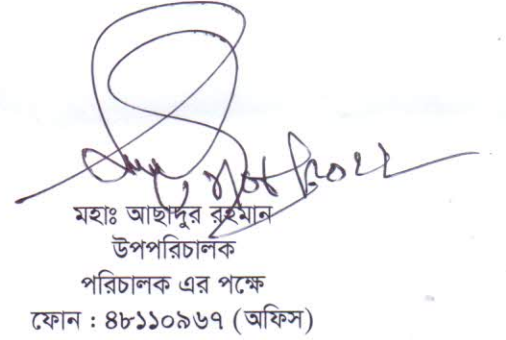 মহাঃ আছাদুর রহমান
উপপরিচালক
পরিচালক এর পক্ষে
ফোন : ৪৮১১০৯৬৭ (অফিস)